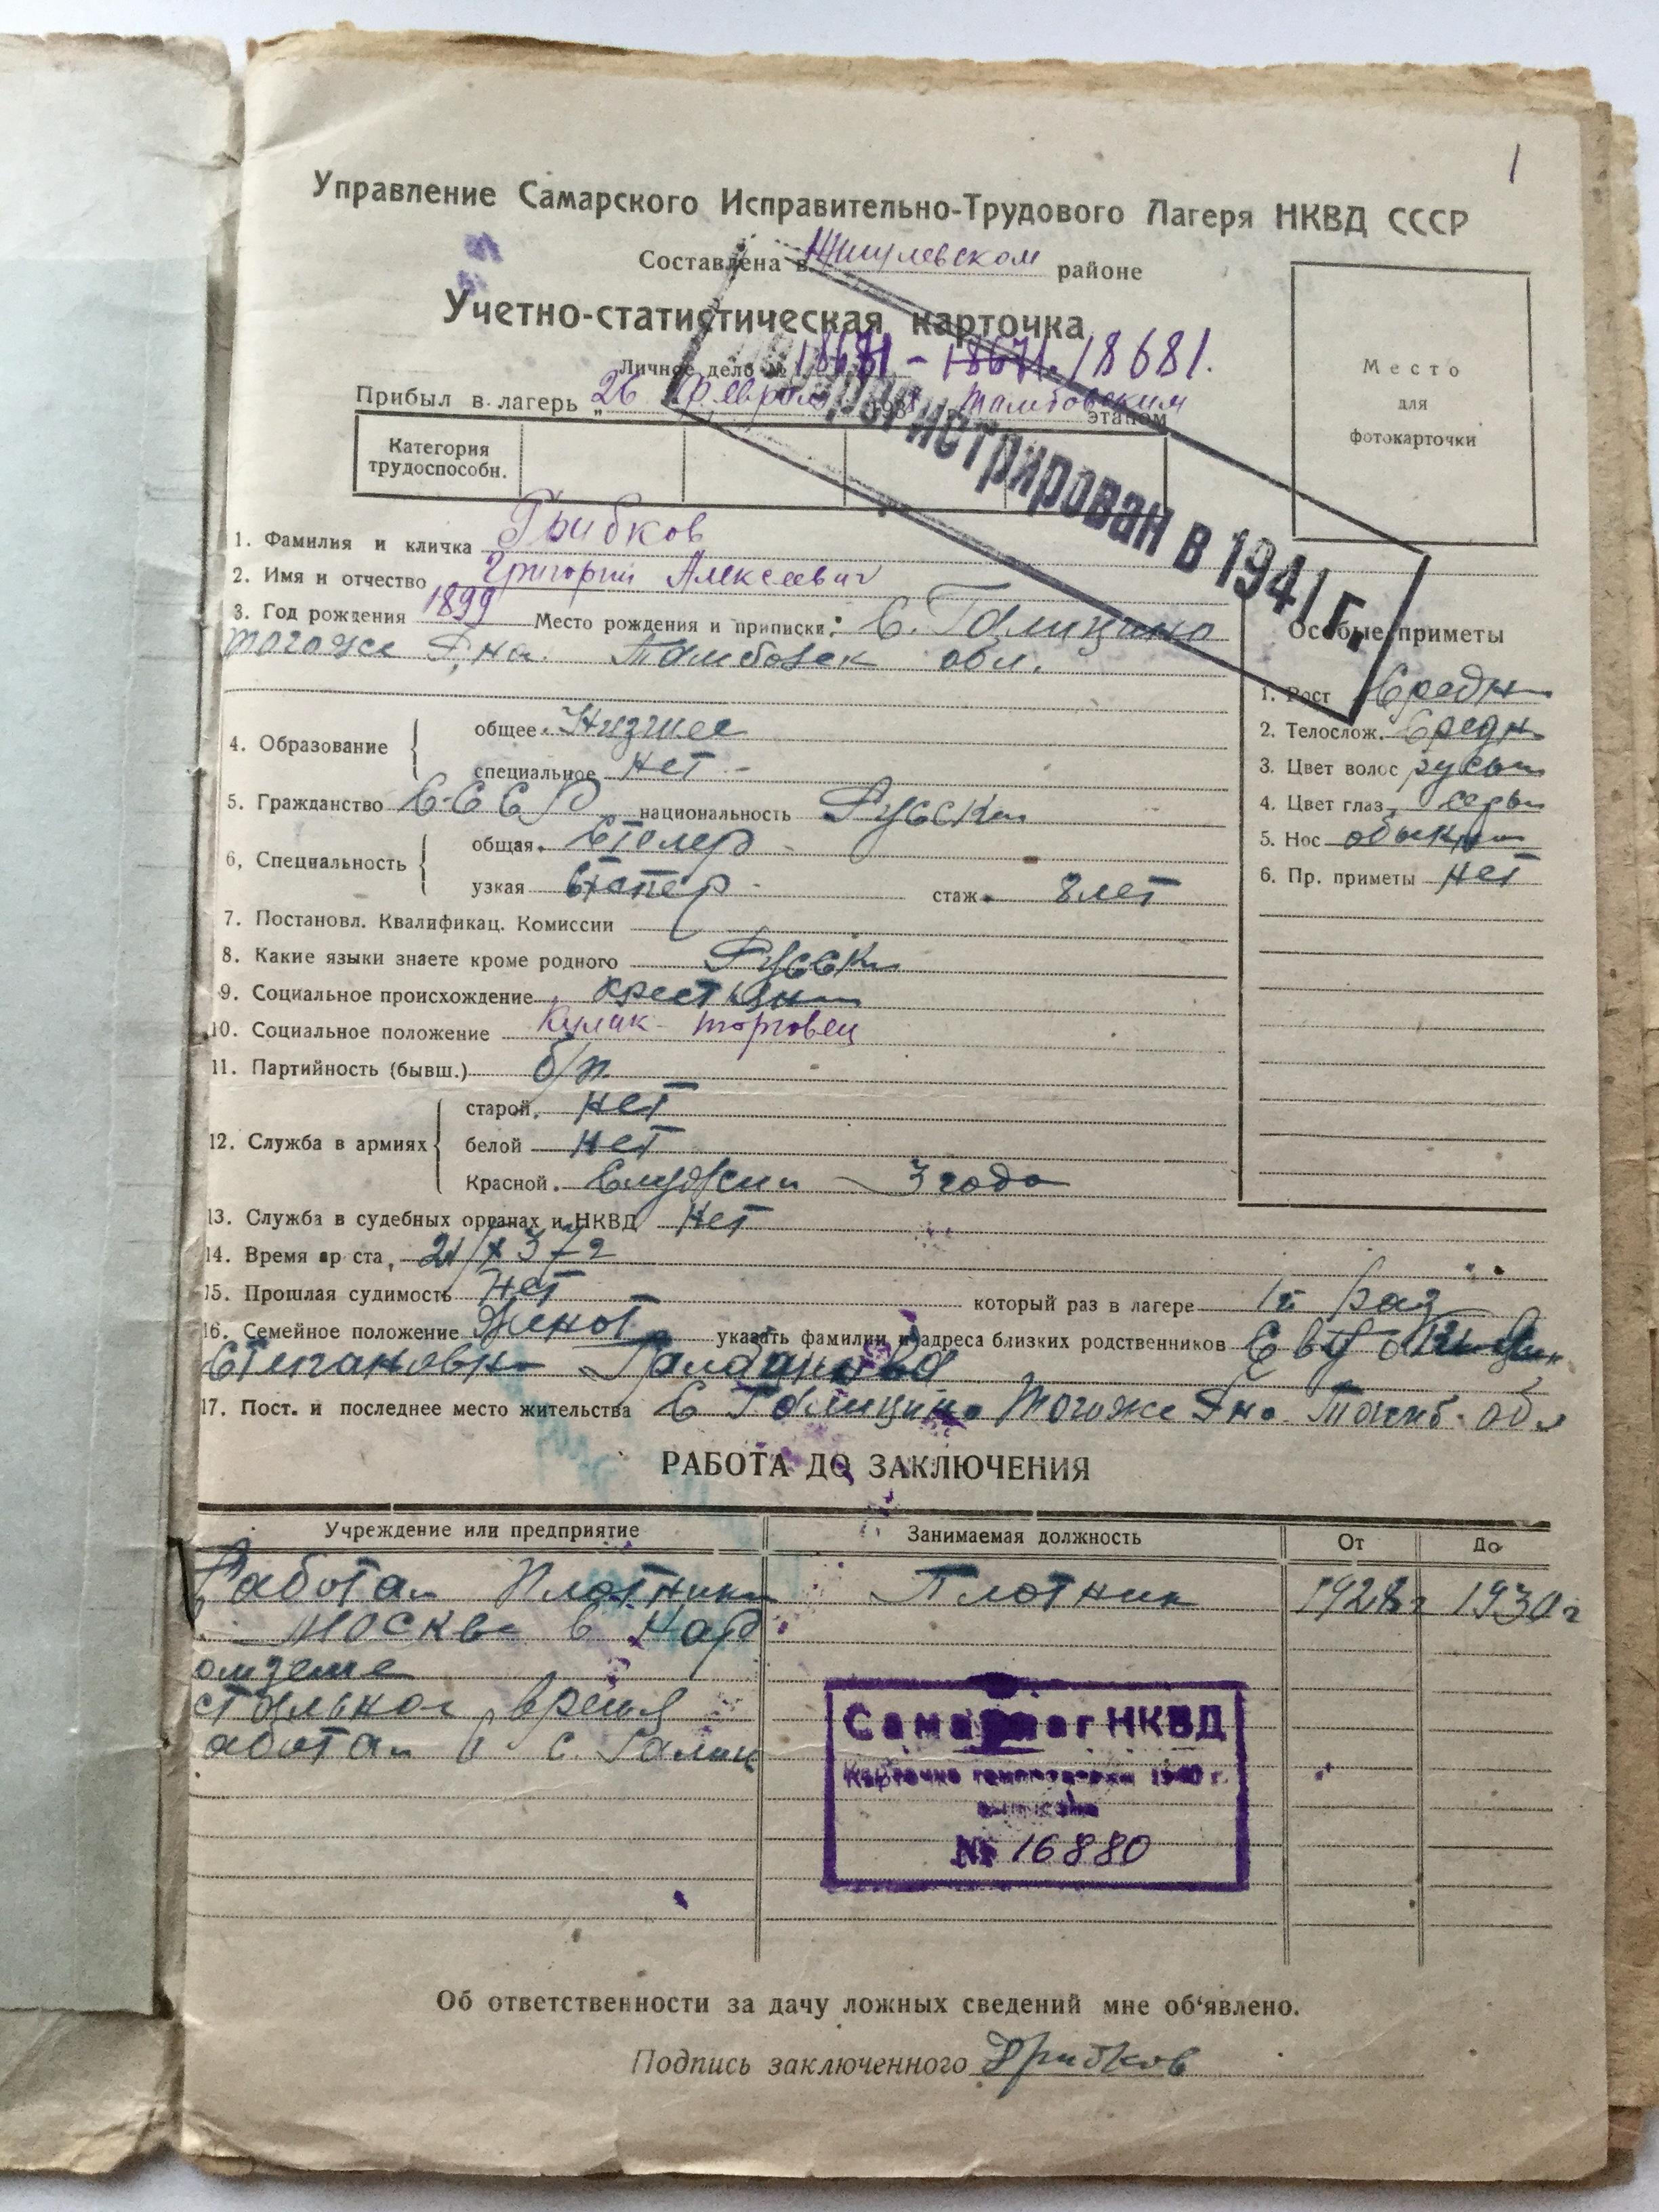 1
Управление Самарского Исправительно-Трудового Лагеря НКВД СССР
Составлена в Жигулевском районе
Учетно-статистическая карточка
Личное дело № 18681 - 18671. 18681.
Прибыл в лагерь „26 февраля 1938 Тамбовским этапом
Место
для
фотокарточки
Категория
трудоспособн.
регистрирован в 1941 г.
1. Фамилия и кличка Грибков
2. Имя и отчество Григорий Алексеевич
3. Год рождения 1899 Место рождения и приписки: С. Голицино
Тамбовск обл.
4. Образование
общее Низшее
специальное Нет
5. Гражданство СССР национальность Русски
6, Специальность
общая Столер
узкая стаж 8 лет
7. Постановл. Квалификац. Комиссии
8. Какие языки знаете кроме родного Русски
9. Социальное происхождение крестьянин
10. Социальное положение Кулак - торговец
11. Партийность (бывш.) б/п
12. Служба в армиях
старой. Нет
белой Нет
Красной. Служил 3 года
13. Служба в судебных органах и НКВД Нет
14. Время ар ста,
15. Прошлая судимость Нет который раз в лагере 1й раз
16. Семейное положение Женот указать фамилии и адреса близких родственников
17. Пост. и последнее место жительства С Голицино Тамб. обл
Особые приметы
1. Рост Средн
2. Телослож. Средн
3. Цвет волос русы
4. Цвет глаз серы
5. Нос обыкн
6. Пр. приметы Нет
РАБОТА ДО ЗАКЛЮЧЕНИЯ
Учреждение или предприятие Занимаемая должность От До
Работал Плотником Плотник 1928г 1930г
Москве в Нар
время
в с. Голиц
Самарлаг НКВД
Карточка 1940 г.
№ 16880
Об ответственности за дачу ложных сведений мне об‘явлено.
Подпись заключенного Грибков